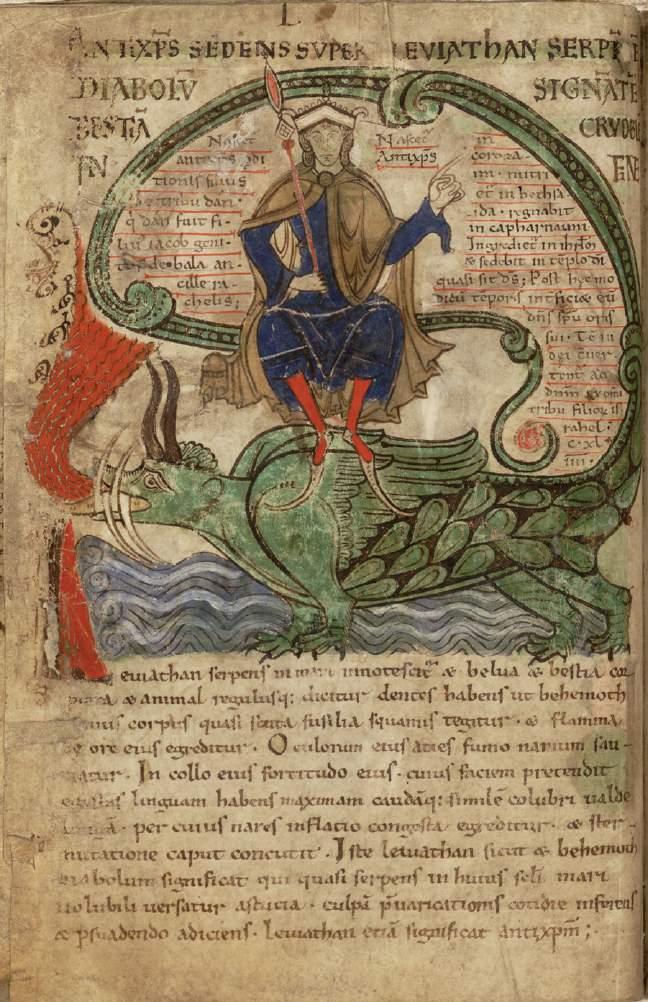 L
ANTIXP̄S SEDENS SUPER LEVIATHAN SERPĒTĒ
DIABOLŪ SIGNĀTĒ
BESTIĀ CRVDELĒ
IN FINE
Nascet᷑
antixp̄s p̄di
tionis filius
de tribu dan᛫
q̄ dan fuit fi-
lius iacob geni-
tus de bala an-
cille ra-
chelis;
Nascet᷑
Antixp̄s
in
coroza-
im᛫ nutri
et᷑ in bethsa-
ida᛫ regnabit
in capharnaum᛫
Ingrediet᷑ in ihrl̄m
& sedebit in tēplo dī
quasi sit ds̄; Post hec mo
dicū tēporis int̄ficiæ eū
dn̄s sp̄u oris
sui᛫
dn̄m
tribu filioꝝ isr̄
rahel᛫
c᛫xl᛫
iiii᛫
Leviathan serpens in mari innotescit᷑ & belua & bestia cor
& animal regulusq; dicitur dentes habens ut behemoth
cuius corpus quasi scuta fusilia squamis tegitur᛫ & flamma
de ore eius egreditur᛫ Oculorum eius acies fumo narium sau-
ciatur᛫ In collo eius fortitudo eius᛫ cuius faciem precedit
egestas linguam habens maximam caudāq; similē colubri ualde
longā᛫ per cuius nares inflatio congesta egreditur᛫ & ster-
nutatione caput concutit᛫ Iste leuiathan sicut & behemoth
diabolum significat qui quasi serpens in huius sclī mari
uolubili uersatur astucia᛫ culpā p̄uaricationis cotidie inferens
& p̄suadendo adiciens᛫ Leviathan etiā significat antixp̄m;